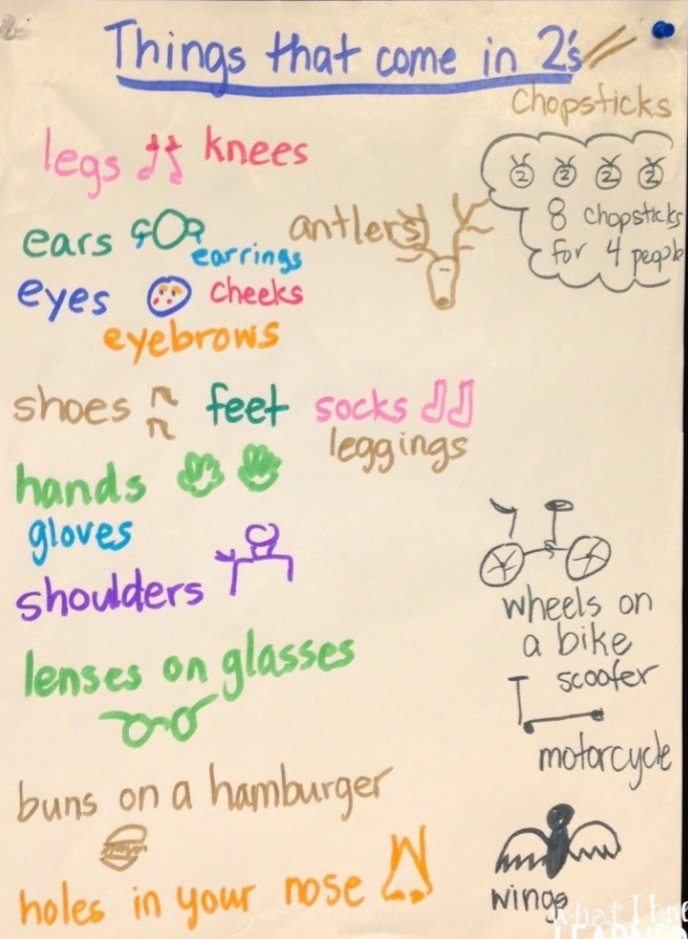 Things that come in 2's
chopsticks
legs knees
2 2 2 2
8 chopsticks
for 4 people
ears earrings
antlers
eyes cheeks
eyebrows
shoes feet socks
leggings
hands
gloves
shoulders
wheels on
a bike
scooter
motorcycle
lenses on glasses
buns on a hamburger
holes in your nose
wings
What I Have
LEARNED